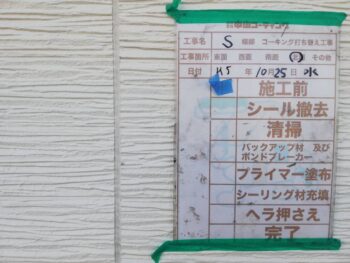 中山コーティング
工事名 S 様邸 コーキング打ち替え工事
工事箇所 東面 西面 南面 その他
日付 H5 年 10月25日 水
施工前
シール撤去
清掃
バックアップ材 及び
ボンドブレーカー
プライマー塗布
シーリング材充填
ヘラ押さえ
完了